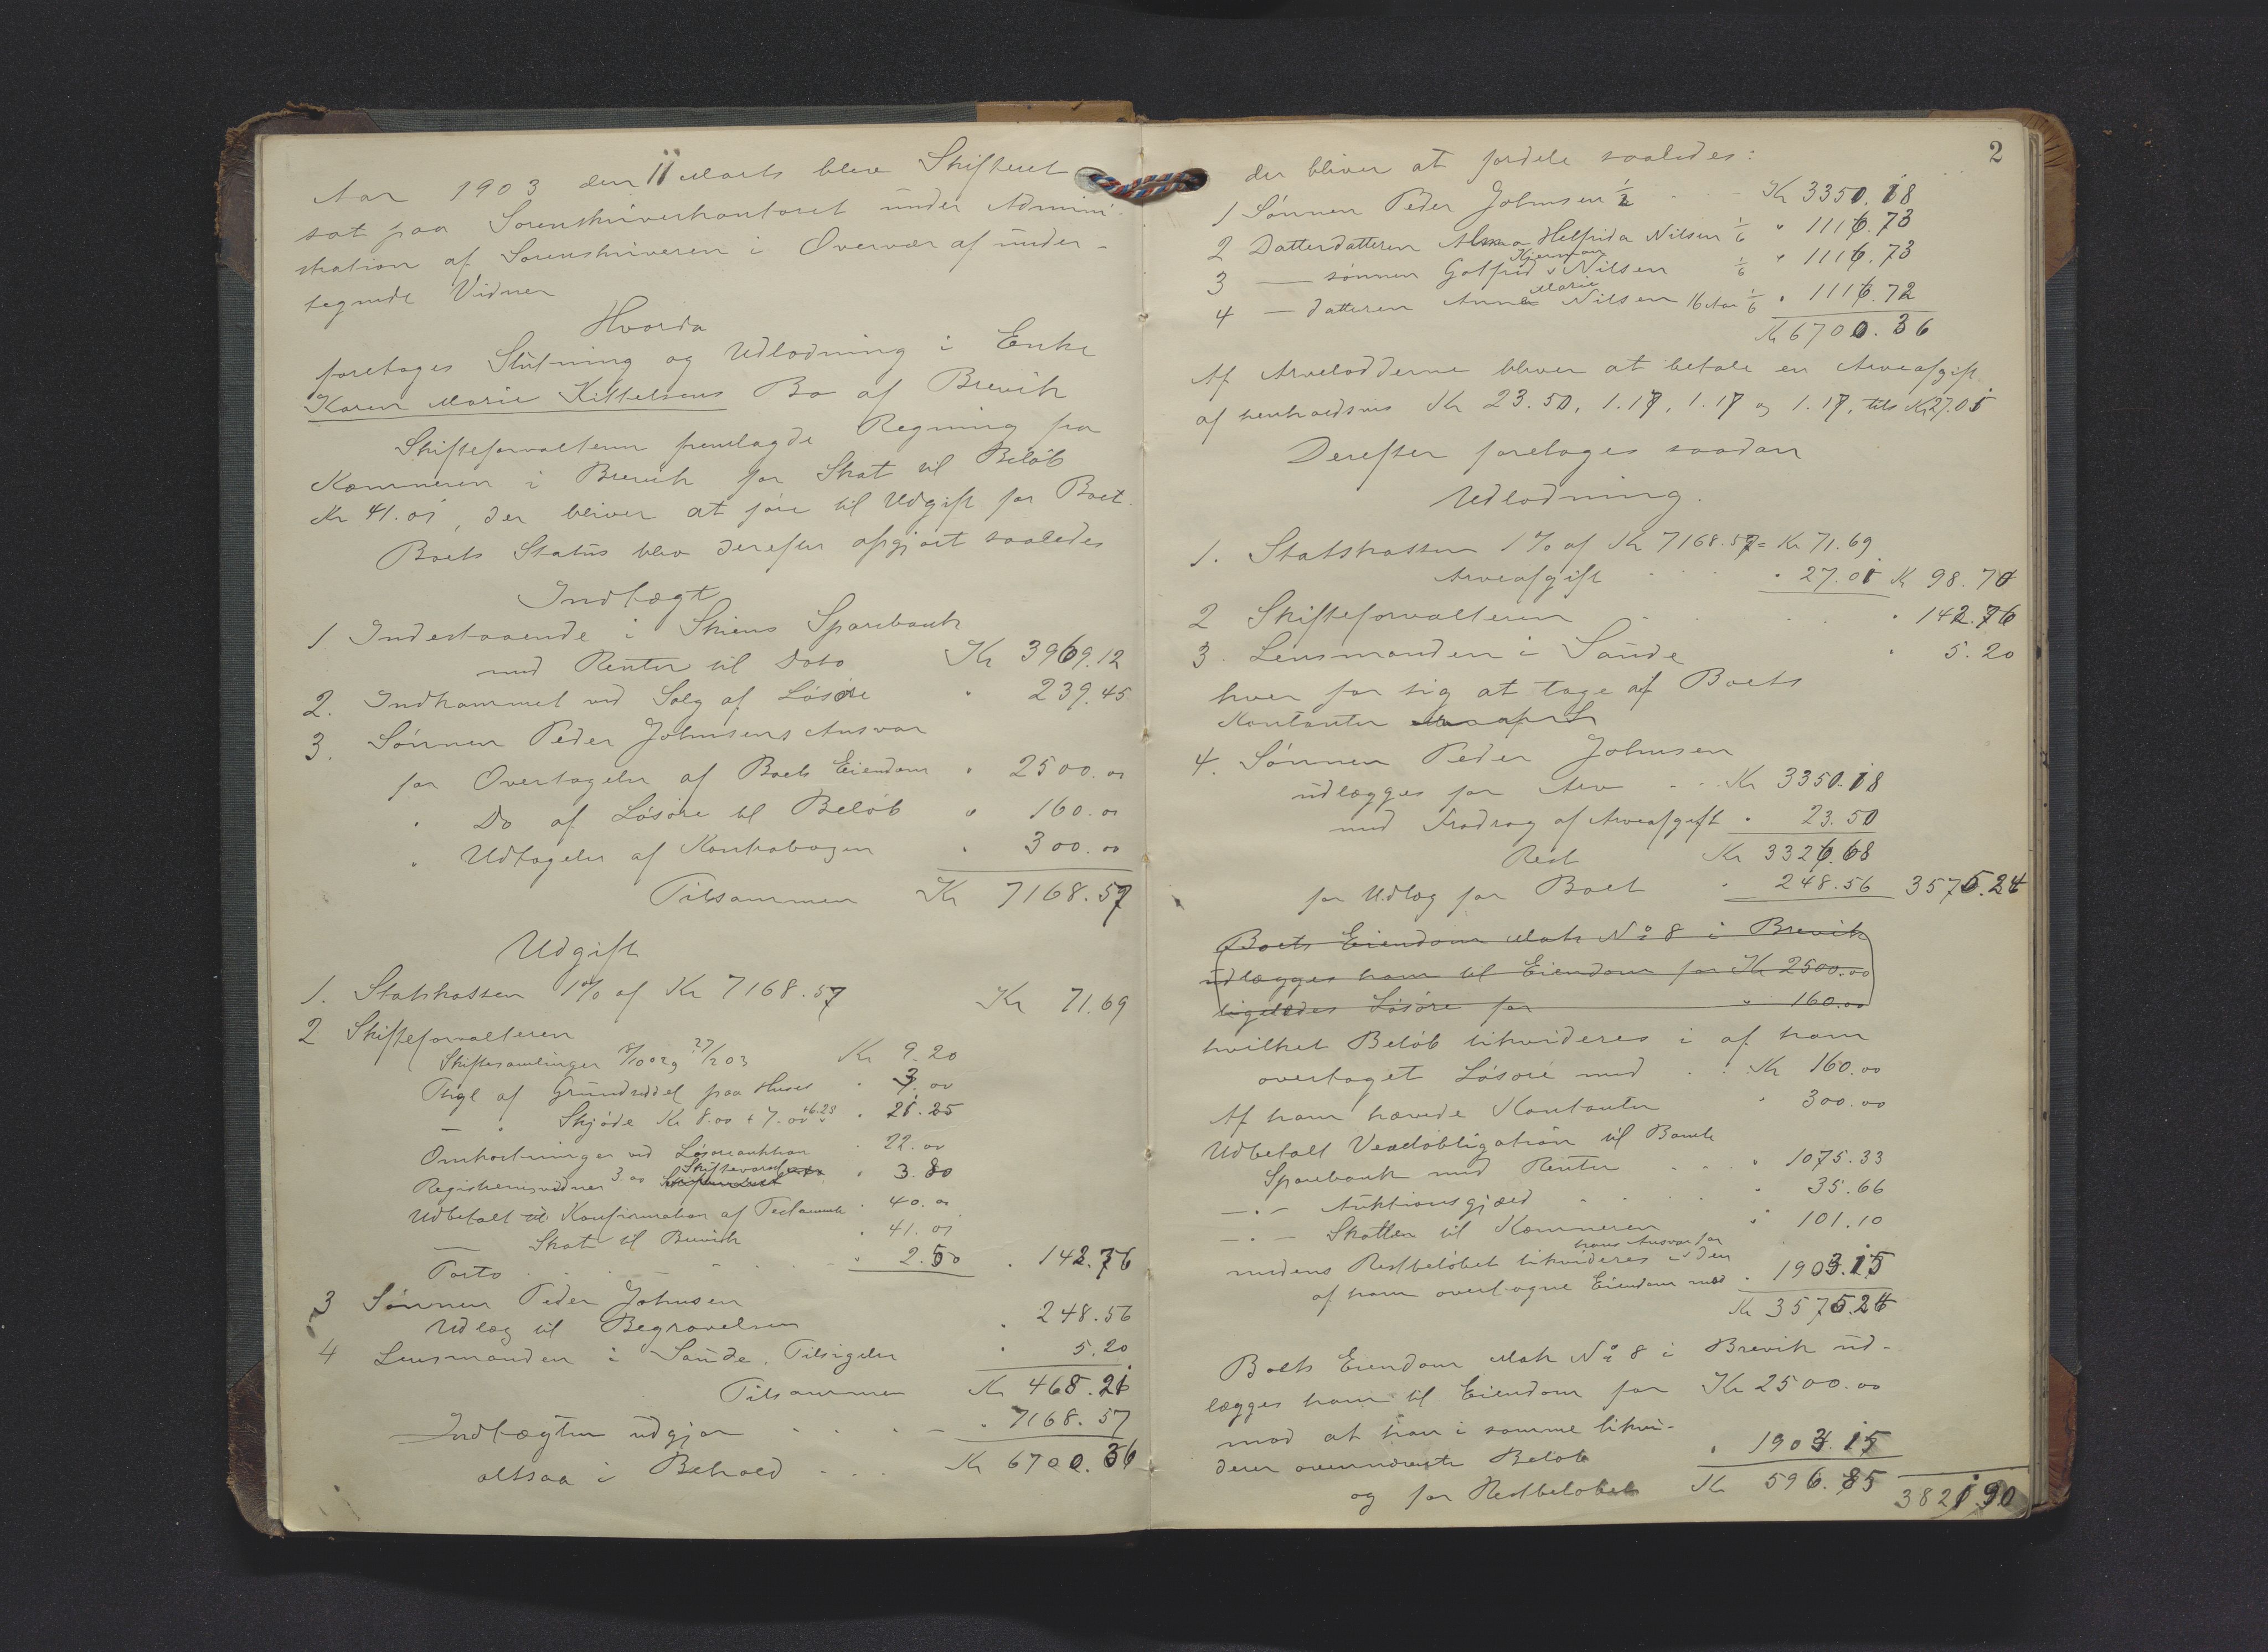 Aar 1903 den 11 Marts blev Skifteret
sat paa Sorenskriverkontoret under Admini-
stration af Sorenskriveren i Overvær af under-
tegnede Vidner
Hvorda
foretages Slutning og Udlodning i Enke
Karen Marie Kittelsens Bo af Brevik
Skifteforvalteren fremlagde Regning fra
Kæmneren i Brevik for Skat til Beløb
Kr 41.01, der bliver at føre til Udgift for Boet.
Boets Status blev derefter opgjort saaledes
Indtægt
1 Indestaaende i Skiens Sparebank
med Renter til Dato Kr 3969.12
2. Indkommet ved Salg af Løsøre " 239.45
3. Sønnen Peder Johnsens Ansvar
for Overtagelse af Boets Eiendom " 2500.00
" Do af Løsøre til Beløb " 160.00
" Udtagelse af Kontrabogen " 300.00
Tilsammen Kr 7168.57
Udgift
1. Statskassen 1% af Kr 7168.57 Kr 71.69
2 Skifteforvalteren
Skiftesamlinger 8/10 02 og 27/2 03 Kr 9.20
Thgl af Grundseddel paa Huset " 3.00
— " Skjøde Kr 8.00 + 7.00 + 6.25 " 21.25
Omkostninger ved Løsøreauktion " 22.00
Registreringsvidner 3.00 Skiftevarsel " 3.80
Udbetalt til Konfirmation af Testamente " 40.00
— Skat til Brevik " 41.01
Porto " 2.50 " 142.76
3 Sønnen Peder Johnsen
Udlæg til Begravelsen " 248.56
4 Lensmanden i Sande. Tilsigelse " 5.20
Tilsammen Kr 468.21
Indtægten udgjør " 7168.57
altsaa i Behold Kr 6700.36
2
der bliver at fordele saaledes:
1 Sønnen Peder Johnsen 1/2 Kr 3350.18
2 Datterdatteren Alma Helfrida Nilsen 1/6 " 1116.73
3 — sønnen Golfred Hjerman Nilsen 1/6 " 1116.73
4 — datteren Anna Marie Nilsen 16 Aar 1/6 " 1116.72
Kr 6700.36
Af Arvelodderne bliver at betale en Arveafgift
af henholdsvis Kr 23.50, 1.17, 1.17 og 1.17, tils Kr 27.01
Derefter foretages saadan
Udlodning.
1. Statskassen 1% af Kr 7168.57 = Kr 71.69
Arveafgift " 27.01 Kr 98.70
2 Skifteforvalteren " 142.76
3. Lensmanden i Sande " 5.20
hver for sig at tage af Boets
Kontanter
4. Sønnen Peder Johnsen
udlægges for Arv Kr 3350.18
med Fradrag af Arveafgift " 23.50
Rest Kr 3326.68
for Udlæg for Boet " 248.56 3575.24
Boets Eiendom Matr No 8 i Brevik
udlægges ham til Eiendom for Kr 2500.00
ligeledes Løsøre for " 160.00
hvilket Beløb likvideres i af ham
overtaget Løsøre med Kr 160.00
Af ham hævede Kontanter " 300.00
Udbetalt Vexelobligation til Bamble
Sparebank med Renter " 1075.33
—"— Auktionsgjæld " 35.66
—"— Skatter til Kæmneren " 101.10
medens Restbeløbet likvideres i hans Ansvar for den
af ham overtagne Eiendom med " 1903.15
Kr 3575.24
Boets Eiendom Matr No 8 i Brevik ud-
lægges ham til Eiendom for Kr 2500.00
mod at han i samme likvi-
derer ovennævnte Beløb " 1903.15
og for Restbeløbet Kr 596.85 3821.90